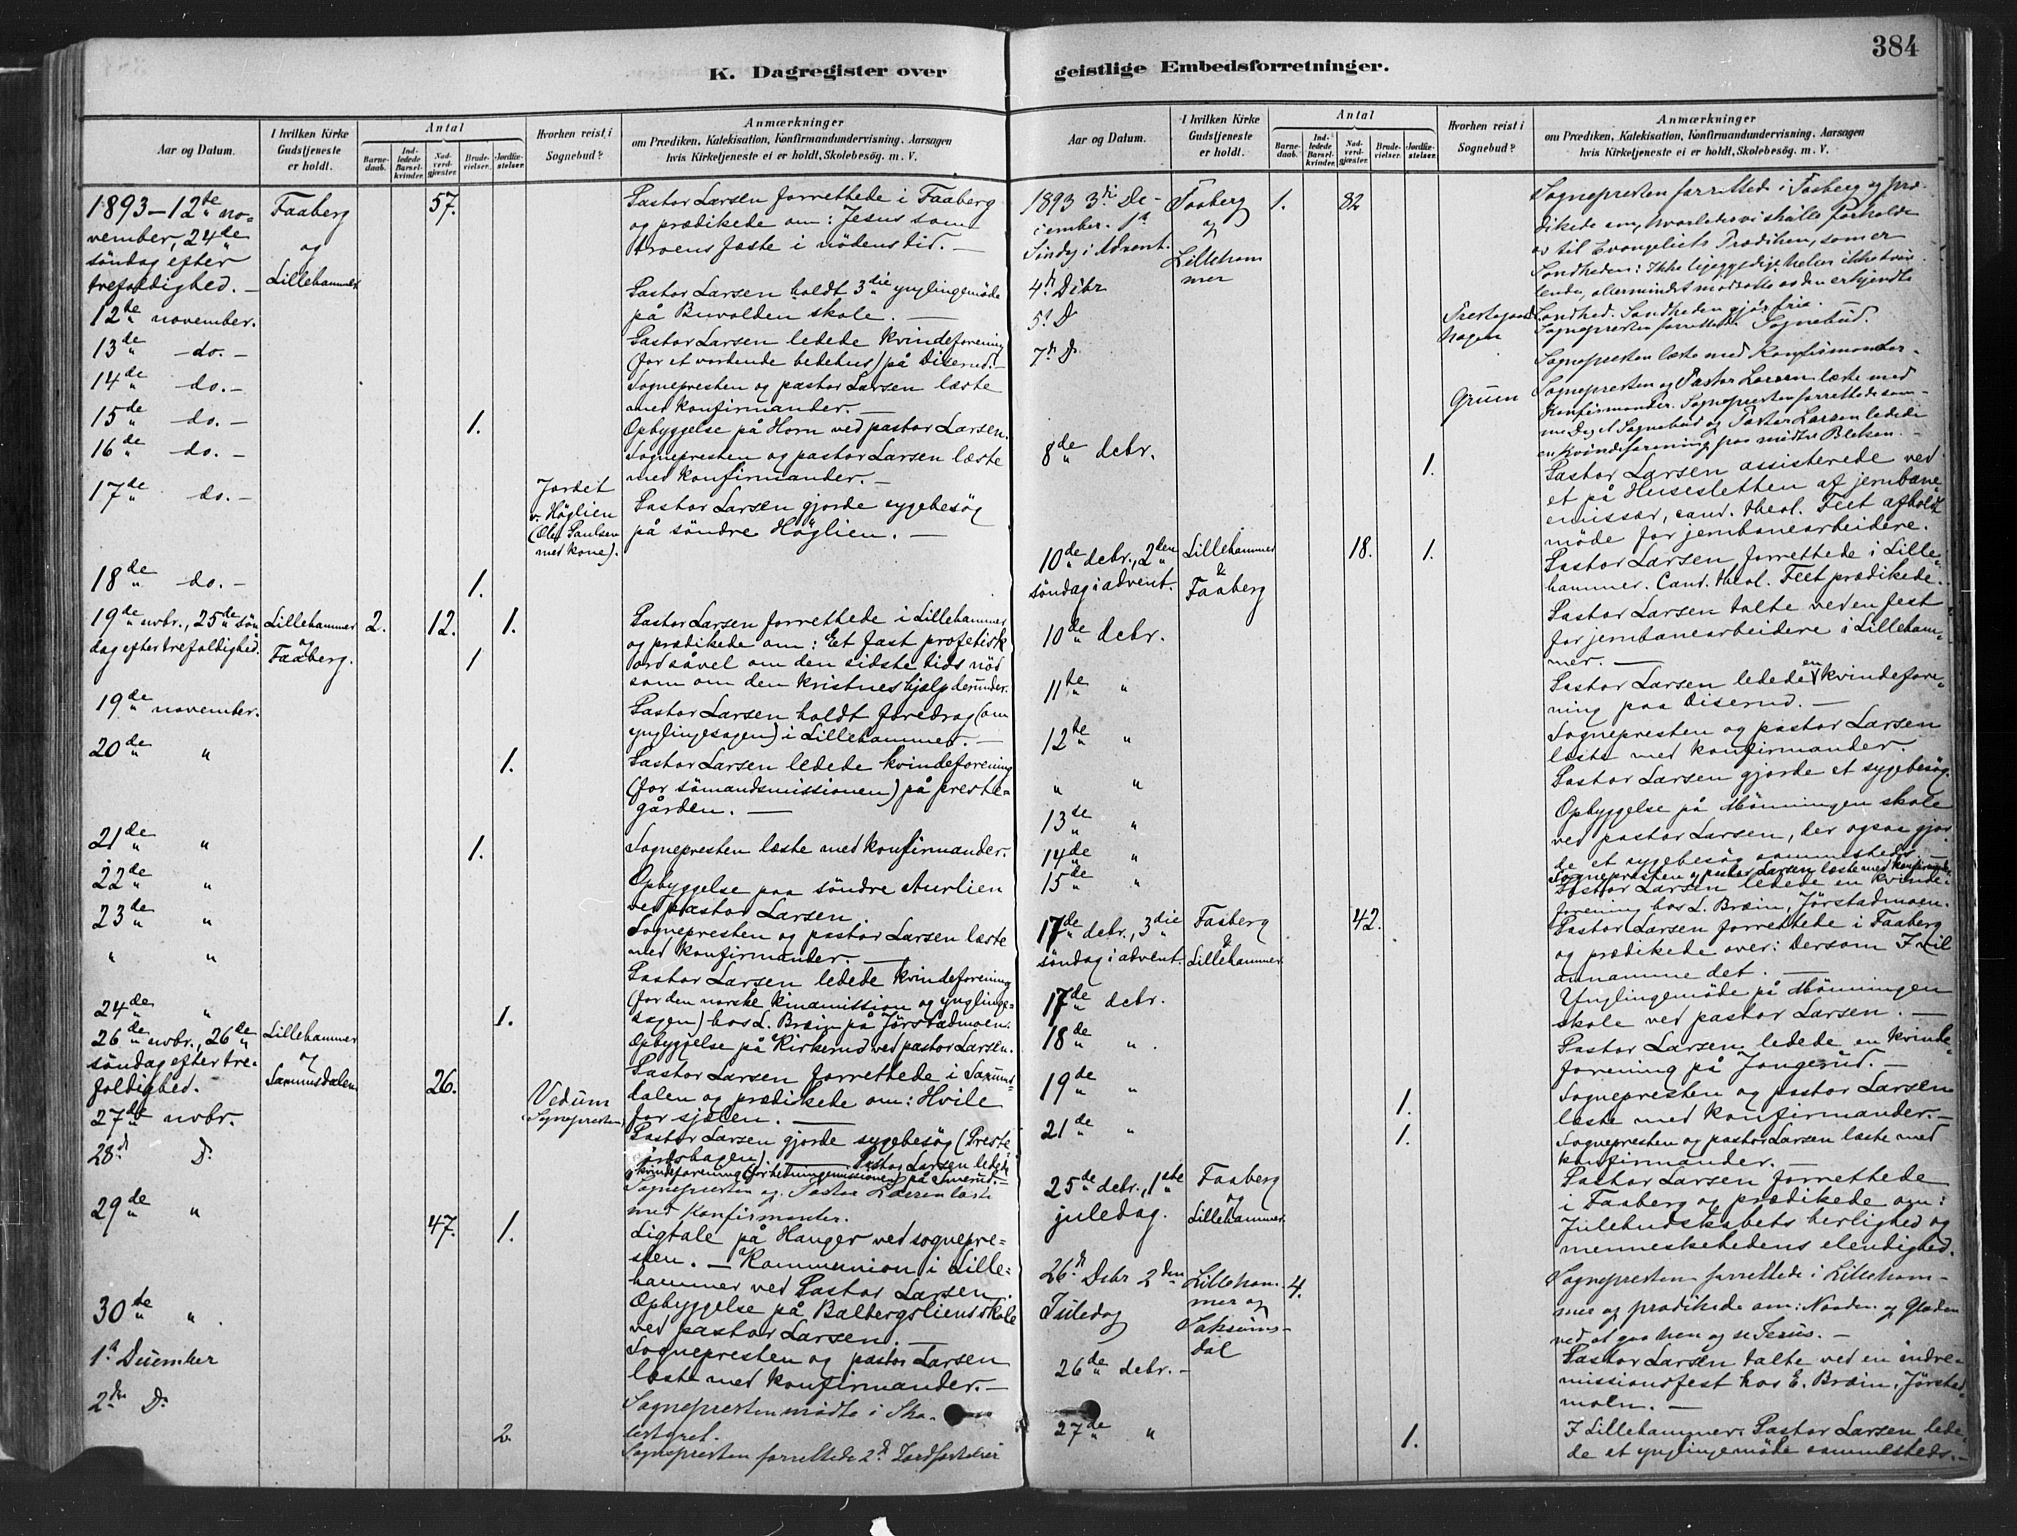 384
K. Dagregister over
geistlige Embedsforretninger.
Aar og Datum.
I hvilken Kirke Gudstjeneste er holdt.
Antal
Barne-daab.
Ind-ledede Barsel-kvinder.
Nad-verd-gjæster.
Brude-vielser.
Jordfæ-stelser.
Hvorhen reist i Sognebud?
Anmærkninger
om Prædiken, Katekisation, Konfirmandundervisning, Aarsagen
hvis Kirketjeneste ei er holdt, Skolebesøg. m. V.
1893 – 12te no-
vember, 24de
søndag efter
trefoldighed. –
Faaberg
og
Lillehammer
57.
Pastor Larsen forrettede i Faaberg
og prædikede om: Jesus som
troens fæste i nødens tid. –
12te november.
Pastor Larsen holdt 3die ynglingemøde
på Buvolden skole. –
13de do. –
Pastor Larsen ledede kvindeforening
(for et vordende bedehus) på Diserud. –
14de do. –
Sognepresten og pastor Larsen læste
med konfirmander. –
15de do. –
1.
Opbyggelse på Horn ved pastor Larsen.
16de do. –
Sognepresten og pastor Larsen læste
med konfirmander. –
17de do. –
Jordet
v. Høglien
(Ole Paulsen
med kone).
Pastor Larsen gjorde sygebesøg
på søndre Høglien. –
18de do. –
1.
19de nvbr., 25de søn
dag efter trefoldighed.
Lillehammer
og
Faaberg.
2.
12.
1.
1
Pastor Larsen forrettede i Lillehammer
og prædikede om: Et fast profetisk
ord såvel om den sidste tids nød
som om den kristnes hjælp derunder.
19de november.
Pastor Larsen holdt foredrag (om
ynglingesagen) i Lillehammer. –
20de "
1.
Pastor Larsen ledede kvindeforening
(for sømandsmissionen) på preste-
gården. –
21de "
1.
Sognepresten læste med konfirmander.
22de "
Opbyggelse paa søndre Aurlien
ved pastor Larsen.
23de "
Sognepresten og pastor Larsen læste
med konfirmander. –
" "
Pastor Larsen ledede kvindeforening
(for den norske kinamission og ynglinge-
sagen) hos L. Bræin på Jørstadmoen.
24de "
1.
Opbyggelse på Kirkerud ved pastor Larsen.
26de nvbr., 26de
søndag efter tre-
foldighed.
Lillehammer
og
Saxumsdalen
26.
Pastor Larsen forrettede i Saxums-
dalen og prædikede om: Hvile
for sjælen. –
27de nvbr.
Vedum
(Sognepresten)
Pastor Larsen gjorde sygebesøg (Preste-
gårdshagen)
28d D.
Pastor Larsen ledede
kvindeforening (for hedningemissionen) på Smerud. –
29de "
Sognepresten og Pastor Larsen læste
med Konfirmander.
47.
1.
Ligtale på Hanger ved sognepre-
sten. – Kommunion i Lille-
hammer ved Pastor Larsen.
30te "
Opbyggelse på Balbergsliens skole
ved pastor Larsen. –
1ste December
Sognepresten og pastor Larsen
læste med konfirmander. –
2den D.
Sognepresten mødte i Sko-
lestyret.
2.
Sognepresten forrettede 2de Jordfæstelser
Aar og Datum.
I hvilken Kirke Gudstjeneste er holdt.
Antal
Barne-daab.
Ind-ledede Barsel-kvinder.
Nad-verd-gjæster.
Brude-vielser.
Jordfæ-stelser.
Hvorhen reist i Sognebud?
Anmærkninger
om Prædiken, Katekisation, Konfirmandundervisning, Aarsagen
hvis Kirketjeneste ei er holdt, Skolebesøg. m. V.
1893 3di De-
cember. 1st
Søndg i Advent.
Faaberg
og
Lilleham
mer
1.
82
Sognepresten forrettede i Faaberg og præ-
dikede om, hvorledes vi skulle forholde
os til Evangeliets Prædiken, som er
Sandheden: Ikke ligegyldige heller ikke tvivlende, allermindst modsætte os den erkjendte
Sandhed. Sandheden gjør fria.
4d Dcbr
5t D
Prestegaards
hagen
Sognepresten forrettede Sognebud.
Sognepresten læste med Konfirmander. –
7d D.
Gruen
Sognepresten og Pastor Larsen læste med
Konfirmander. Sognepresten forrettede sam-
me Dag et Sognebud og Pastor Larsen ledede
en Kvindeforening paa midtre Bleken. –
8de dcbr.
1.
Pastor Larsen assisterede ved
et på Husesletten af jernbane-
emissær, cand. theol. Feet afholdt
møde for jernbanearbeidere.
10de dcbr., 2den
søndag i advent.
Lillehammer
&
Faaberg
18.
1.
Pastor Larsen forrettede i Lille-
hammer. Cand. theol. Feet prædikede.
10de dcbr.
Pastor Larsen talte ved en fest
for jernbanearbeidere i Lilleham-
mer. –
11te "
Pastor Larsen ledede en kvindefore-
ning paa Diserud. –
12te "
Sognepresten og pastor Larsen
læste med konfirmander.
" "
Pastor Larsen gjorde et sygebesøg.
13de "
Opbyggelse på Mønningen skole
ved pastor Larsen, der ogsaa gjor-
de et sygebesøg sammesteds. –
14de "
Sognepresten og pastor Larsen læste med konfirmander.
15de "
Pastor Larsen ledede en kvinde-
forening hos L. Bræin, Jørstadmoen.
17de dcbr., 3die
søndag i advent.
Faaberg
&
Lillehammer.
42.
Pastor Larsen forrettede i Faaberg
og prædikede over: Dersom I vil
annamme det. –
17de dcbr.
Ynglingemøde på Mønningen
skole ved pastor Larsen. –
18de ".
Pastor Larsen ledede en kvinde-
forening på Jongerud. –
19de "
1.
Sognepresten og pastor Larsen
læste med konfirmander. –
21de "
1.
Sognepresten og pastor Larsen læste med
konfirmander. –
25de dcbr., 1ste
juledag.
Faaberg
og
Lillehammer.
Pastor Larsen forrettede
i Faaberg og prædikede om:
Julebudskabets herlighed og
menneskehedens elendighed.
26d Dcbr 2den
Juledag
Lilleham-
mer og
Saksums-
dal
4.
Sognepresten forrettede i Lilleham-
mer og prædikede om: Naaden og Glæden
ved at gaa hen og se Jesus. –
26de dcbr. –
Pastor Larsen talte ved en indre-
missionsfest hos E. Bræin, Jørstad-
moen. –
27de "
1.
I Lillehammer. Pastor Larsen lede-
de et ynglingemøde sammesteds. –